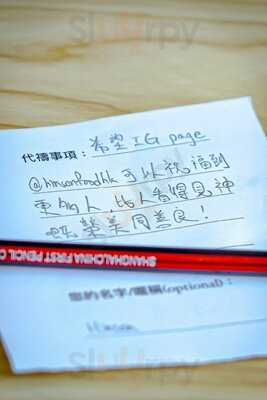 Sluurpy
代禱事項： 希望 IG page
@himsonfoodhk 可以祝福到
更多人 人看得見神
既榮美同善良！
SHANGHAI CHINA FIRST PENCIL C
您的名字/暱稱(optional)：
Himson
Sluurpy